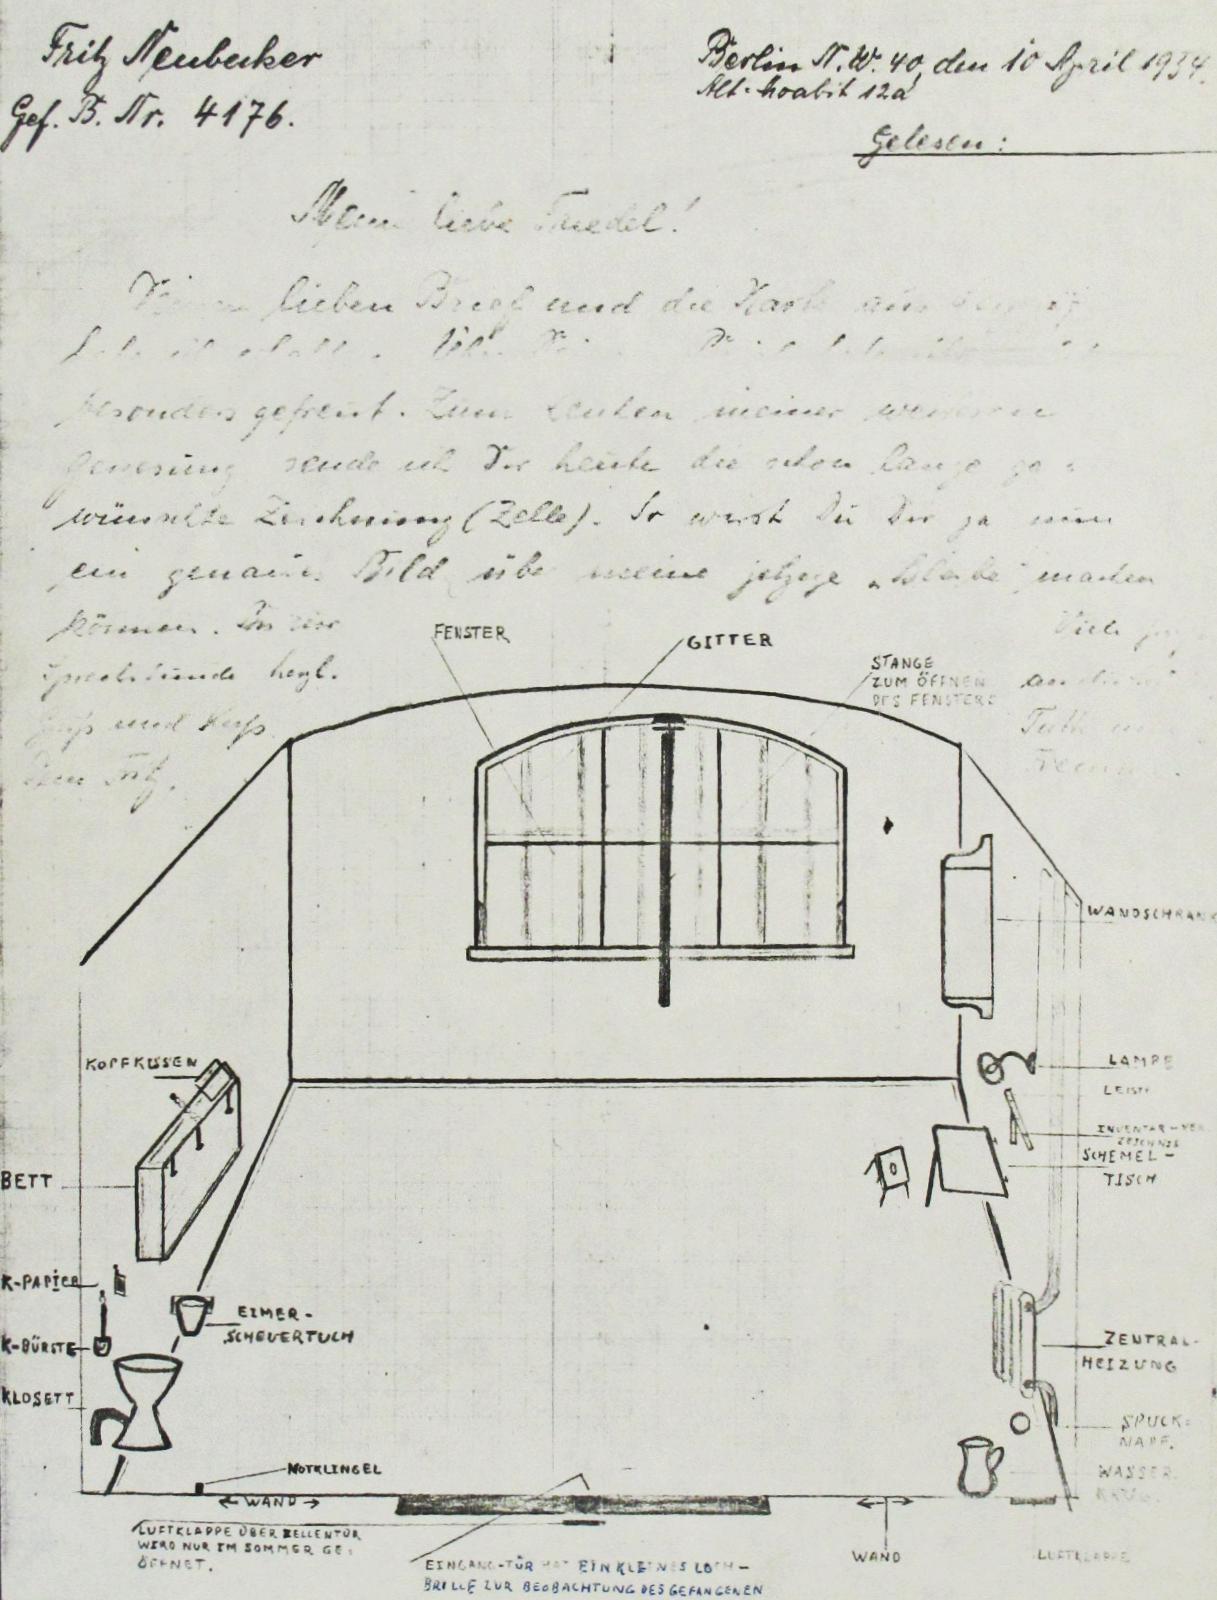 Fritz Neubecker
Gef. B. Nr. 4176.
Berlin N.W. 40, den 10 April 1934.
Alt-Moabit 12a
Gelesen:
Meine liebe Friedel!
lieben Brief und die Karte aus
besonders gefreut. Zum meiner weiteren
Genesung sende ich Dir heute die schon lange ge-
wünschte Zeichnung (Zelle). So wirst Du Dir ja nun
ein genaues Bild über meine jetzige „Bleibe" machen
können.
Sprechstunde herzl.
Gruß und Kuß
Dein Fritz.
Viele
FENSTER
GITTER
STANGE
ZUM ÖFFNEN
DES FENSTERS
WANDSCHRANK
KOPFKISSEN
LAMPE
LEISTE
INVENTAR-VER-
ZEICHNIS
SCHEMEL-
TISCH
BETT
K-PAPIER
EIMER-
SCHEUERTUCH
K-BÜRSTE
ZENTRAL-
HEIZUNG
KLOSETT
SPUCK-
NAPF.
NOTKLINGEL
WASSER-
KRUG.
WAND
LUFTKLAPPE ÜBER ZELLENTÜR
WIRD NUR IM SOMMER GE-
ÖFFNET.
WAND
LUFTKLAPPE
EINGANG-TÜR HAT EIN KLEINES LOCH-
BRILLE ZUR BEOBACHTUNG DES GEFANGENEN